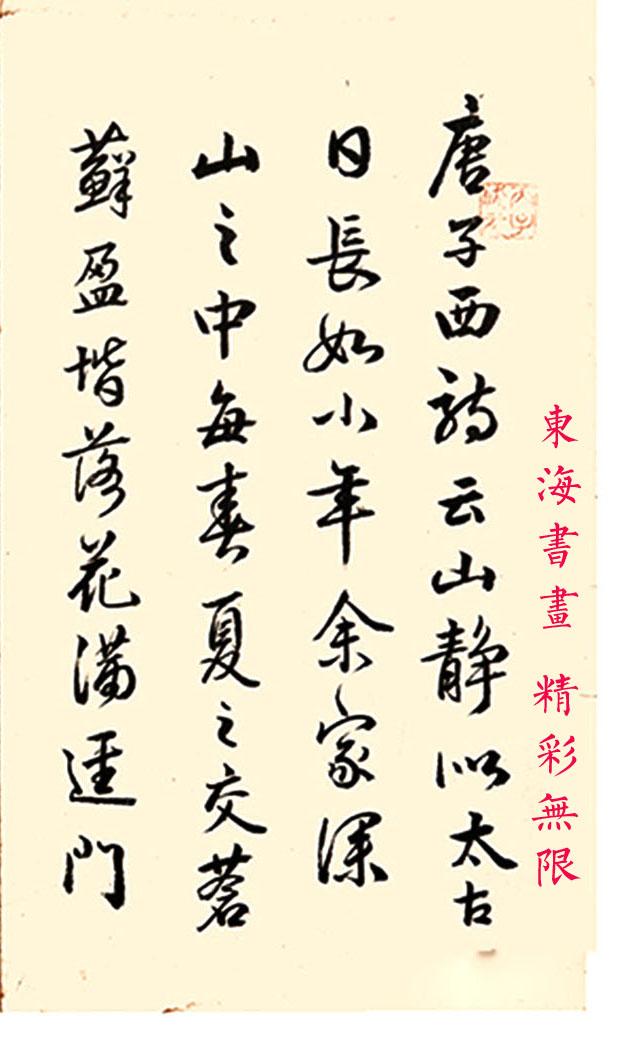 東海書畫 精彩無限
唐子西詩云山静似太古
日長如小年余家深
山之中每春夏之交蒼
蘚盈堦落花滿逕門